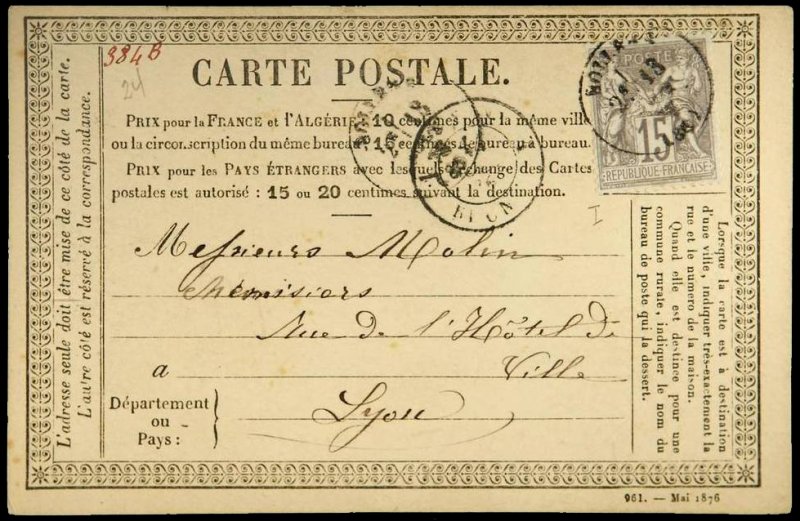 384 B
24
CARTE POSTALE.
POSTE
15
REPUBLIQUE FRANÇAISE
PRIX pour la FRANCE et l'ALGÉRIE : 10 centimes pour la même ville
ou la circonscription du même bureau, 15 centimes de bureau à bureau.
PRIX pour les PAYS ÉTRANGERS avec lesquels l'échange des Cartes
postales est autorisé : 15 ou 20 centimes suivant la destination.
RHONE
I
Messieurs Molin
Rue de l'Hôtel de
a Ville
Département
ou
Pays :
Lyon
L'adresse seule doit être mise de ce côté de la carte.
L'autre côté est réservé à la correspondance.
Lorsque la carte est à destination
d'une ville, indiquer très-exactement la
rue et le numero de la maison.
Quand elle est destinée pour une
commune rurale, indiquer le nom du
bureau de poste qui la dessert.
961. — Mai 1876